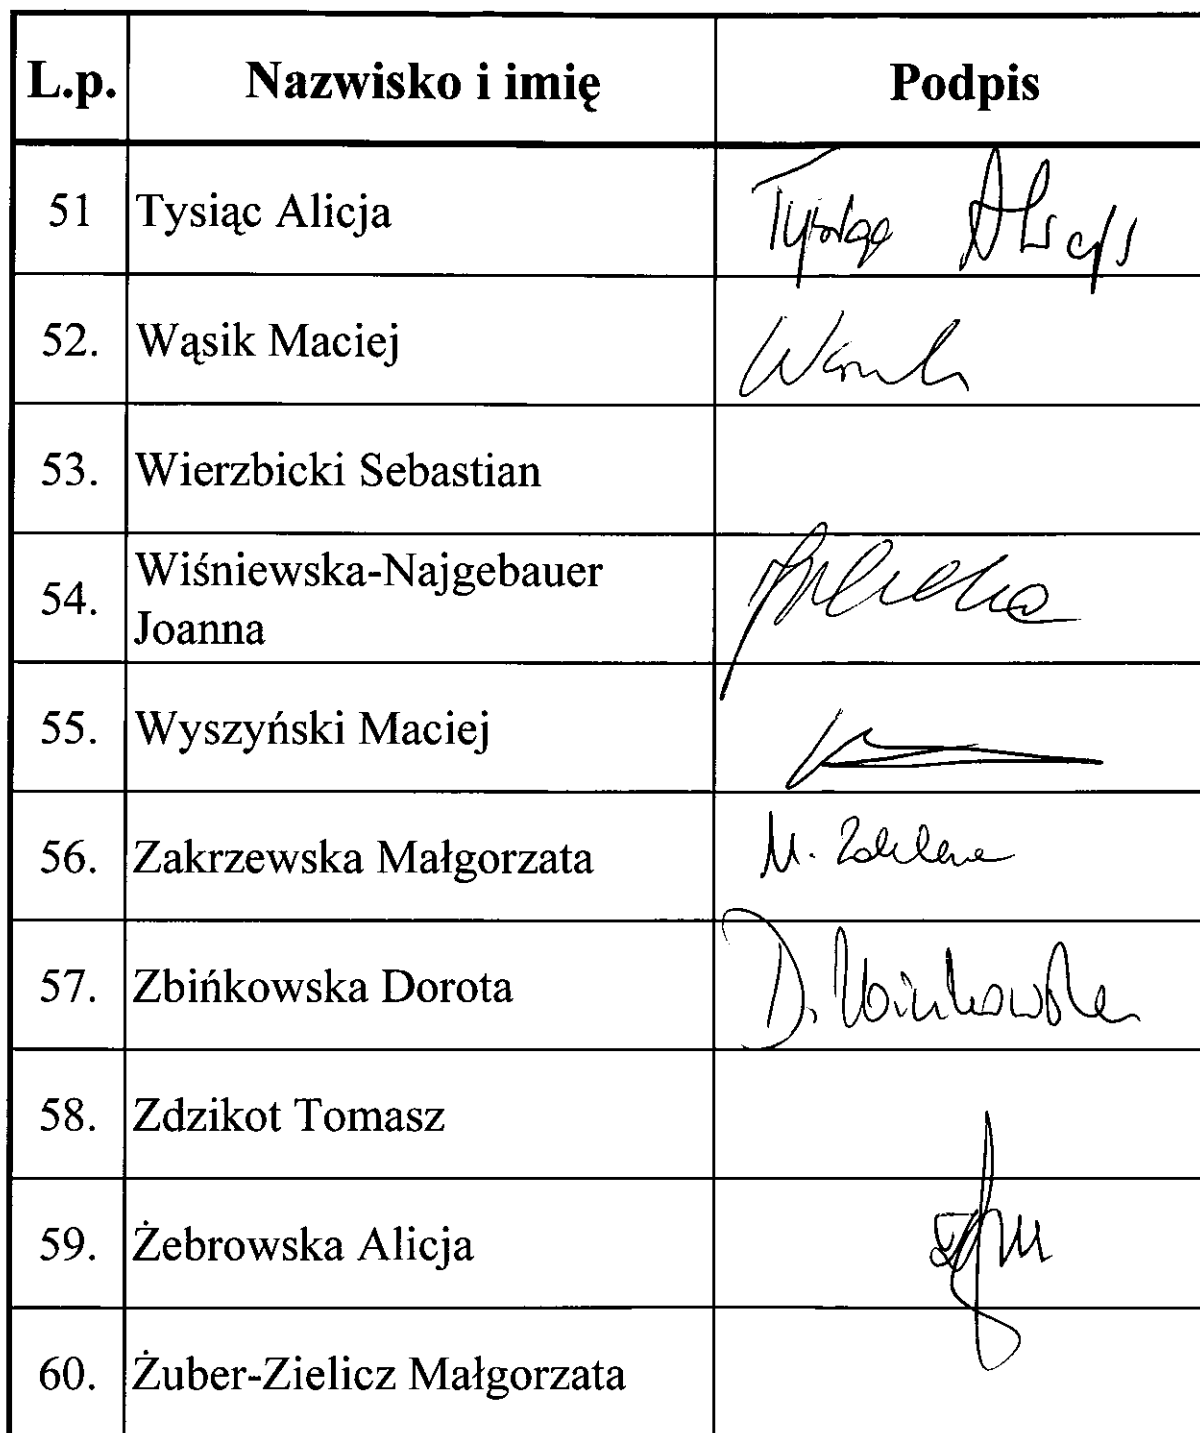 L.p. Nazwisko i imię Podpis
51 Tysiąc Alicja Tysiąc Alicja
52. Wąsik Maciej
53. Wierzbicki Sebastian
54. Wiśniewska-Najgebauer
Joanna
55. Wyszyński Maciej
56. Zakrzewska Małgorzata M.
57. Zbińkowska Dorota D. Zbinkowska
58. Zdzikot Tomasz
59. Żebrowska Alicja
60. Żuber-Zielicz Małgorzata